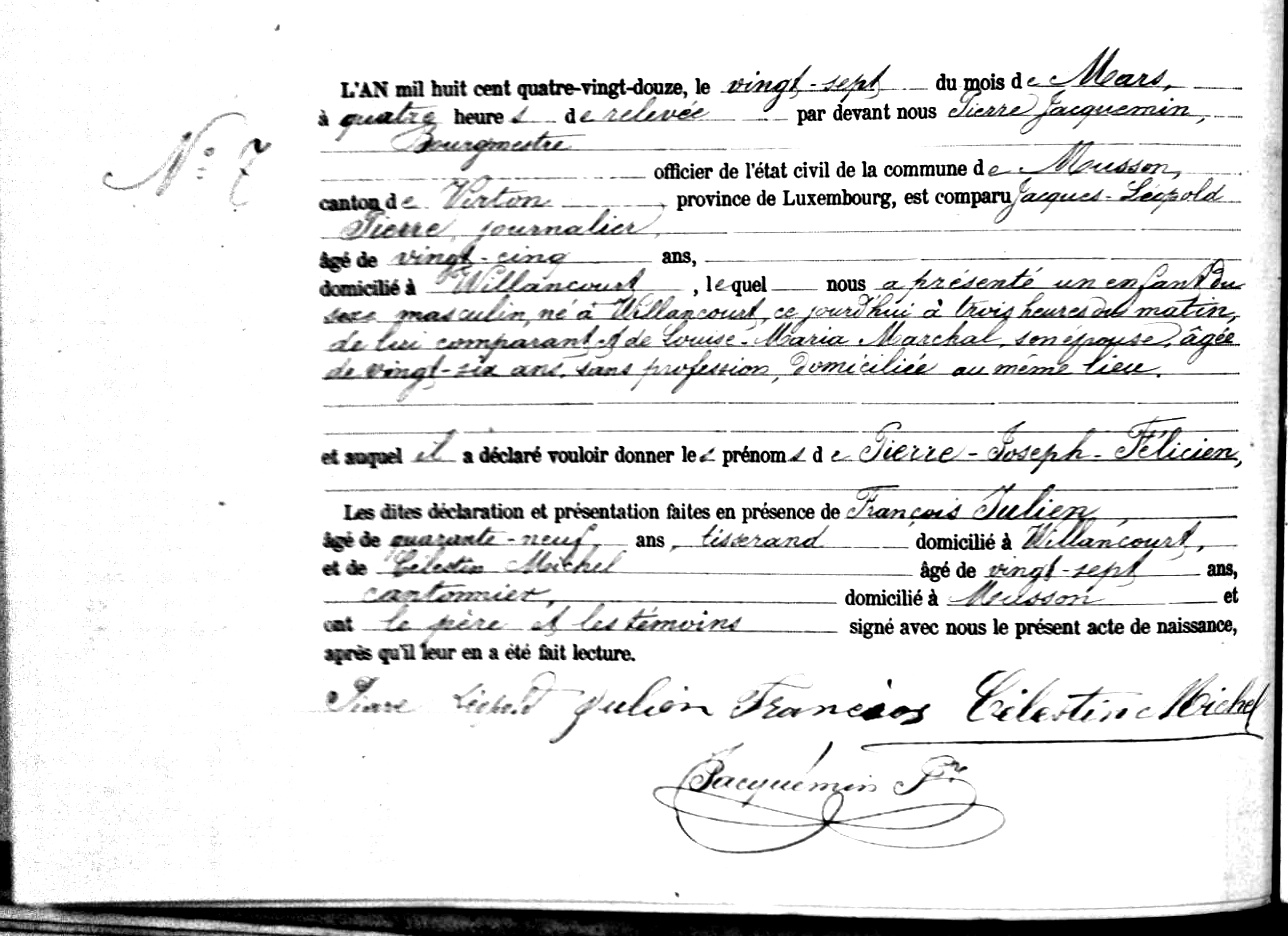 L'AN mil huit cent quatre-vingt-douze, le vingt-sept du mois de Mars,
à quatre heures de relevée par devant nous Pierre Jacquemin,
Bourgmestre
N° 7
officier de l'état civil de la commune de Musson,
canton de Virton, province de Luxembourg, est comparu Jacques-Léopold
Pierre, journalier,
âgé de vingt-cinq ans,
domicilié à Willancourt, lequel nous a présenté un enfant du
sexe masculin, né à Willancourt, ce jourd'hui à trois heures du matin,
de lui comparant et de Louise-Maria Marchal, son épouse, âgée
de vingt-six ans, sans profession, domiciliée au même lieu.
et auquel il a déclaré vouloir donner les prénoms de Pierre-Joseph-Félicien,
Les dites déclaration et présentation faites en présence de François Julien,
âgé de quarante-neuf, ans, tisserand domicilié à Willancourt,
et de Célestin Michel âgé de vingt-sept ans,
cantonnier, domicilié à Musson et
ont le père et les témoins signé avec nous le présent acte de naissance,
après qu'il leur en a été fait lecture.
Piare Léopold Julien François Célestin Michel
Jacquémin Pre